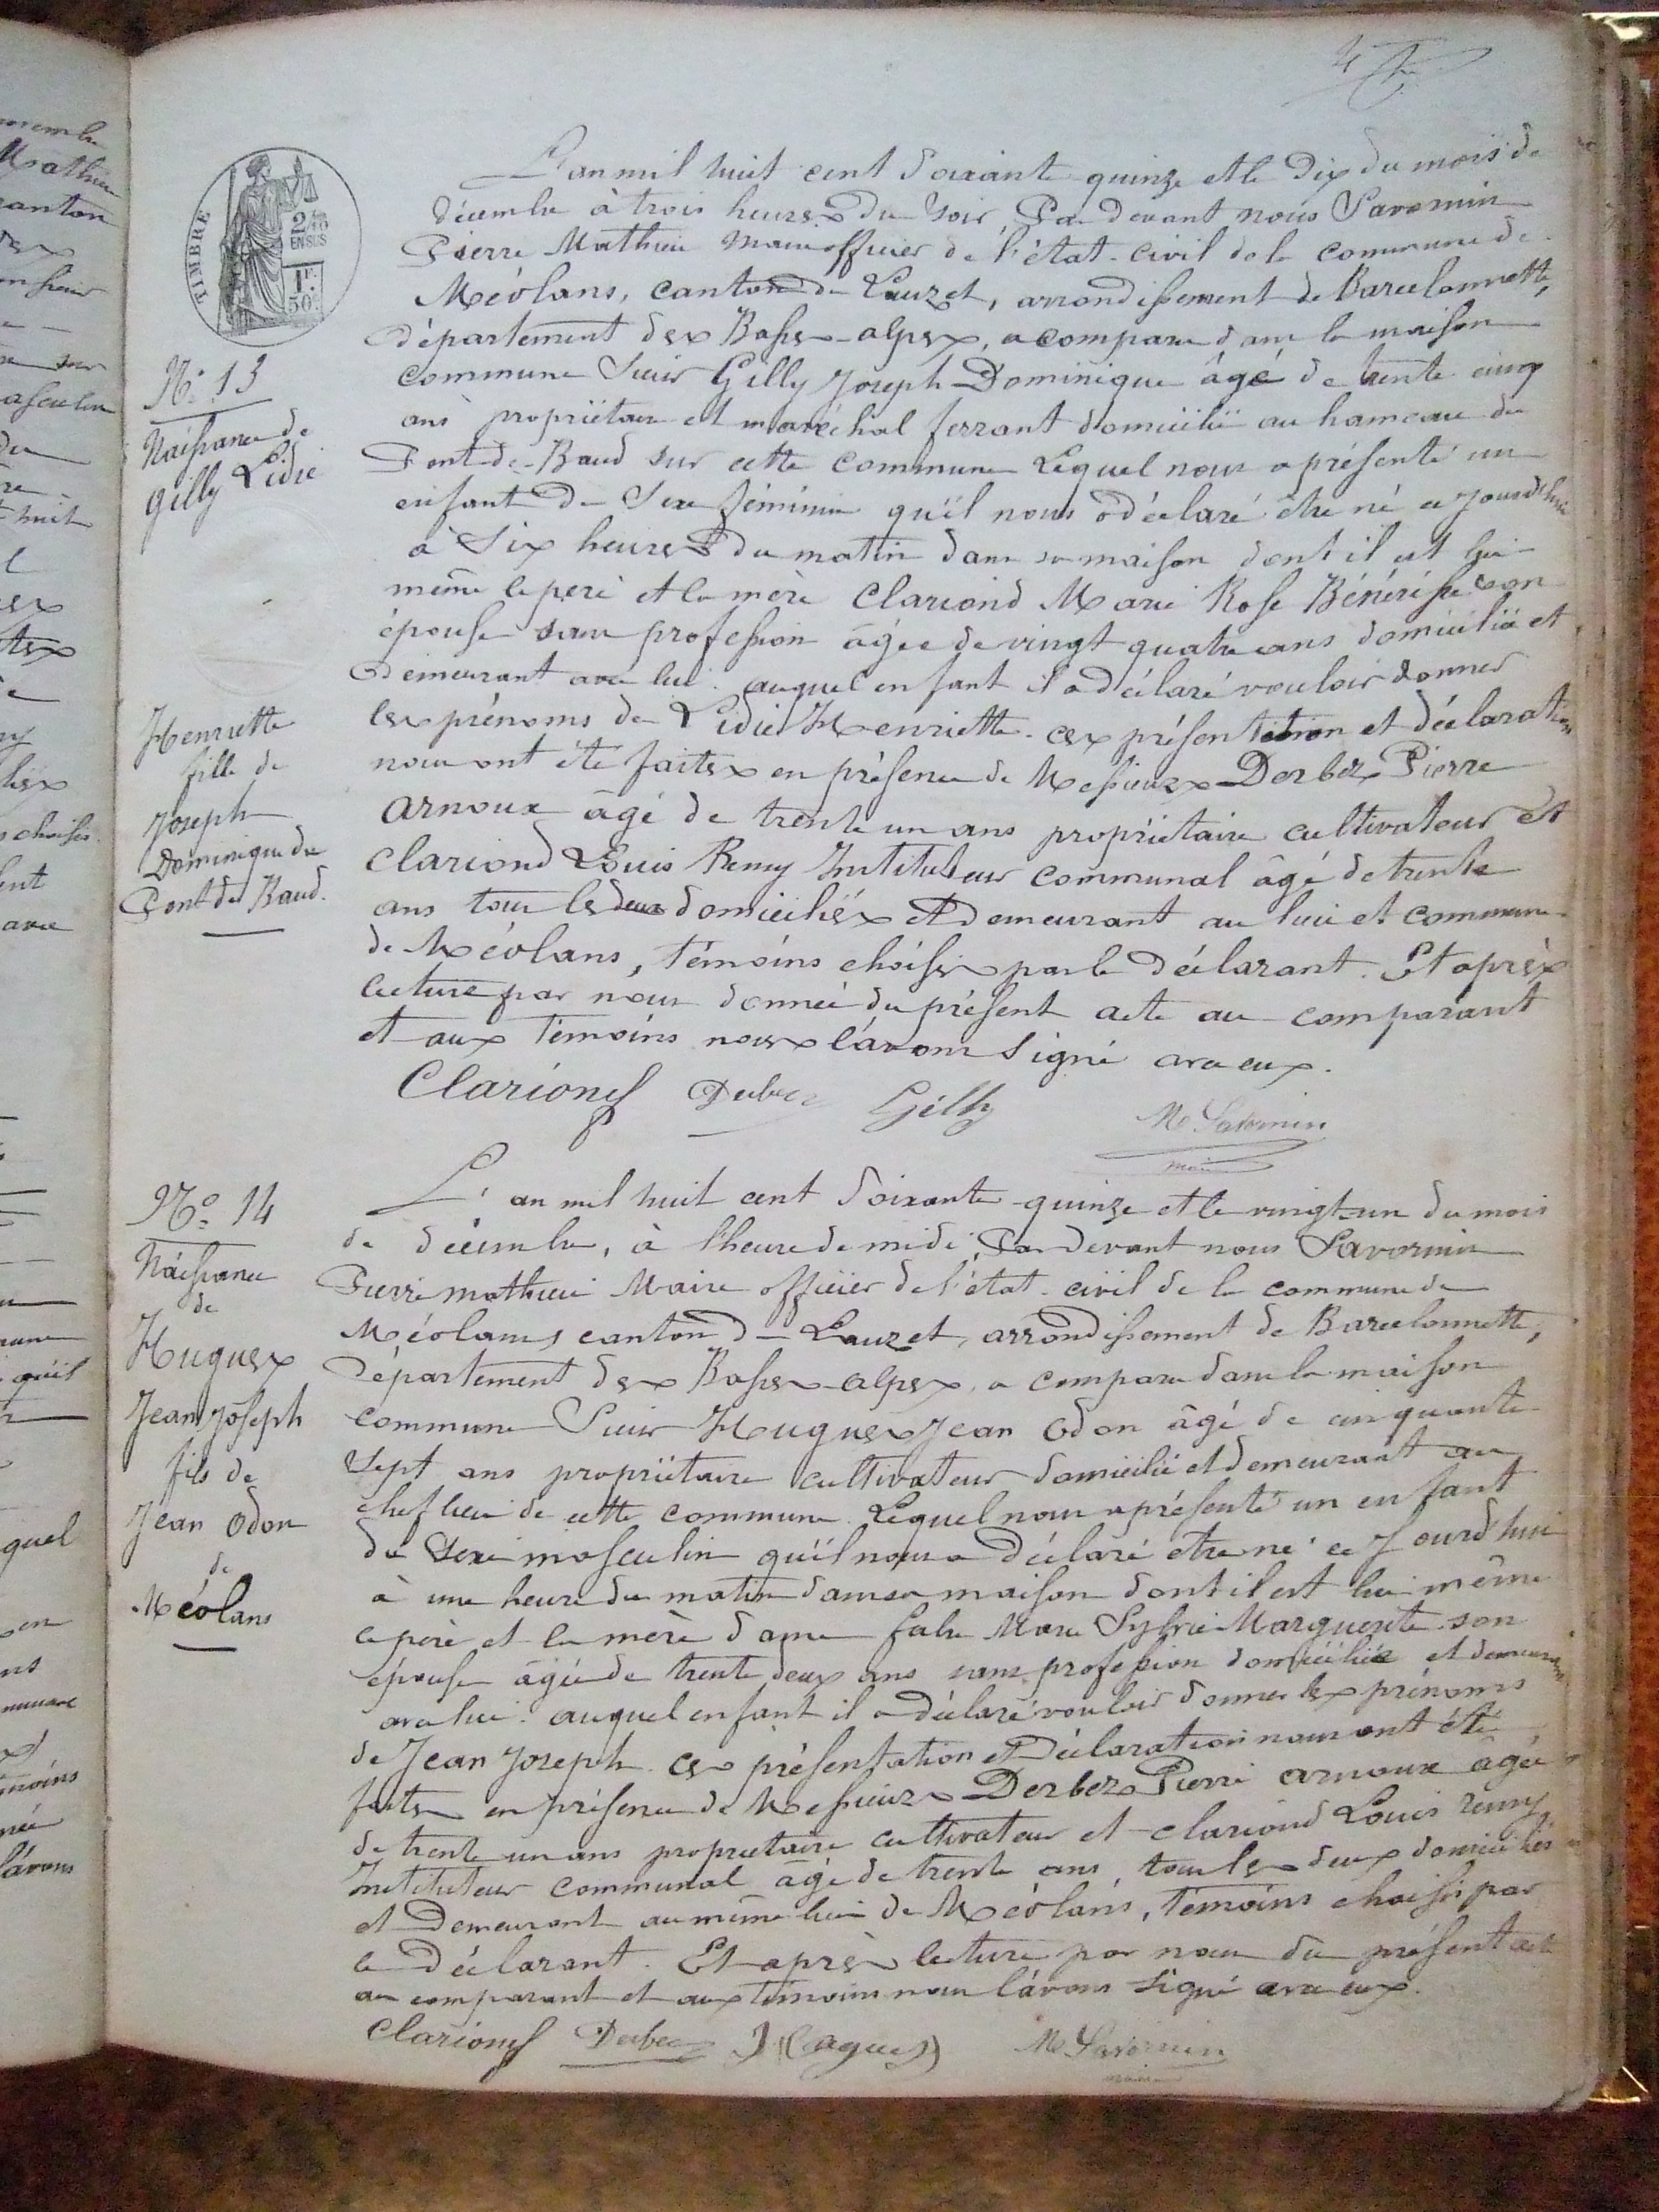 4
TIMBRE
2/10
EN SUS
1F.
50c.
L'an mil huit cent Soixante quinze et le Dix du mois de
décembre à trois heures du Soir, Par devant nous Savornin
Pierre Mathieu Maire officier de l'état-civil de la commune de
Méolans, canton du Lauzet, arrondissement de Barcelonnette,
département des Basses-alpes, a comparu dans la maison
commune Sieur Gilly Joseph Dominique âgé de trente cinq
ans propriétaire et maréchal ferrant domicilié au hameau du
Pont-de-Baud sur cette commune Lequel nous a présenté un
enfant du Sexe féminin qu'il nous a déclaré être né ce jourd'hui
à Six heures du matin dans sa maison dont il est lui-
même le père et la mère Clariond Marie Rose son
épouse sans profession âgée de vingt quatre ans domiciliée et
demeurant avec lui. auquel enfant il a déclaré vouloir donner
les prénoms de Lidie Henriette. ces présentation et déclaration
nous ont été faites en présence de Messieurs Derbez Pierre
arnoux âgé de trente un ans propriétaire cultivateur et
clariond Louis Remy Instituteur communal âgé de trente
ans tous les deux domiciliés et demeurant au lieu et commune
de Méolans, témoins choisis par le déclarant. Et après
lecture par nous donnée du présent acte au comparant
et aux témoins nous l'avons signé avec eux.
Clariond Derbez Gilly M Savornin
maire
No 13
Naissance de
Gilly Lidie
Henriette
fille de
Joseph
Dominique du
Pont de Baud.
L'an mil huit cent Soixante-quinze et le vingt-un du mois
de décembre, à l'heure de midi, Par devant nous Savornin
Pierre mathieu Maire officier de l'état-civil de la commune de
Méolans canton du Lauzet, arrondissement de Barcelonnette,
Département des Basses-alpes, a comparu dans la maison
commune Sieur Hugues Jean Odon âgé de cinquante
sept ans propriétaire cultivateur domicilié et demeurant au
chef lieu de cette commune. Lequel nous a présenté un enfant
du Sexe masculin qu'il nous a déclaré etre né ce Jourd'hui
à une heure du matin dans sa maison dont il est lui même
le père et la mère dame fabre Marie Sylvie Marguerite son
épouse âgée de trente deux ans sans profession domiciliée et demeurant
avec lui. auquel enfant il a déclaré vouloir donner les prénoms
de Jean Joseph. ces présentation et Déclaration nous ont été
faites en présence de Messieurs Derbez Pierre arnoux âgé
de trente un ans propriétaire cultivateur et clariond Louis remy
Instituteur communal âgé de trente ans, tous les deux domiciliés
et Demeurant au même lieu de Méolans, témoins choisis par
le Déclarant. Et après lecture par nous du présent acte
au comparant et aux témoins nous l'avons signé avec eux.
Clariond Derbez J Hugues M Savornin
No 14
Naissance
de
Hugues
Jean Joseph
fils de
Jean Odon
de
Méolans